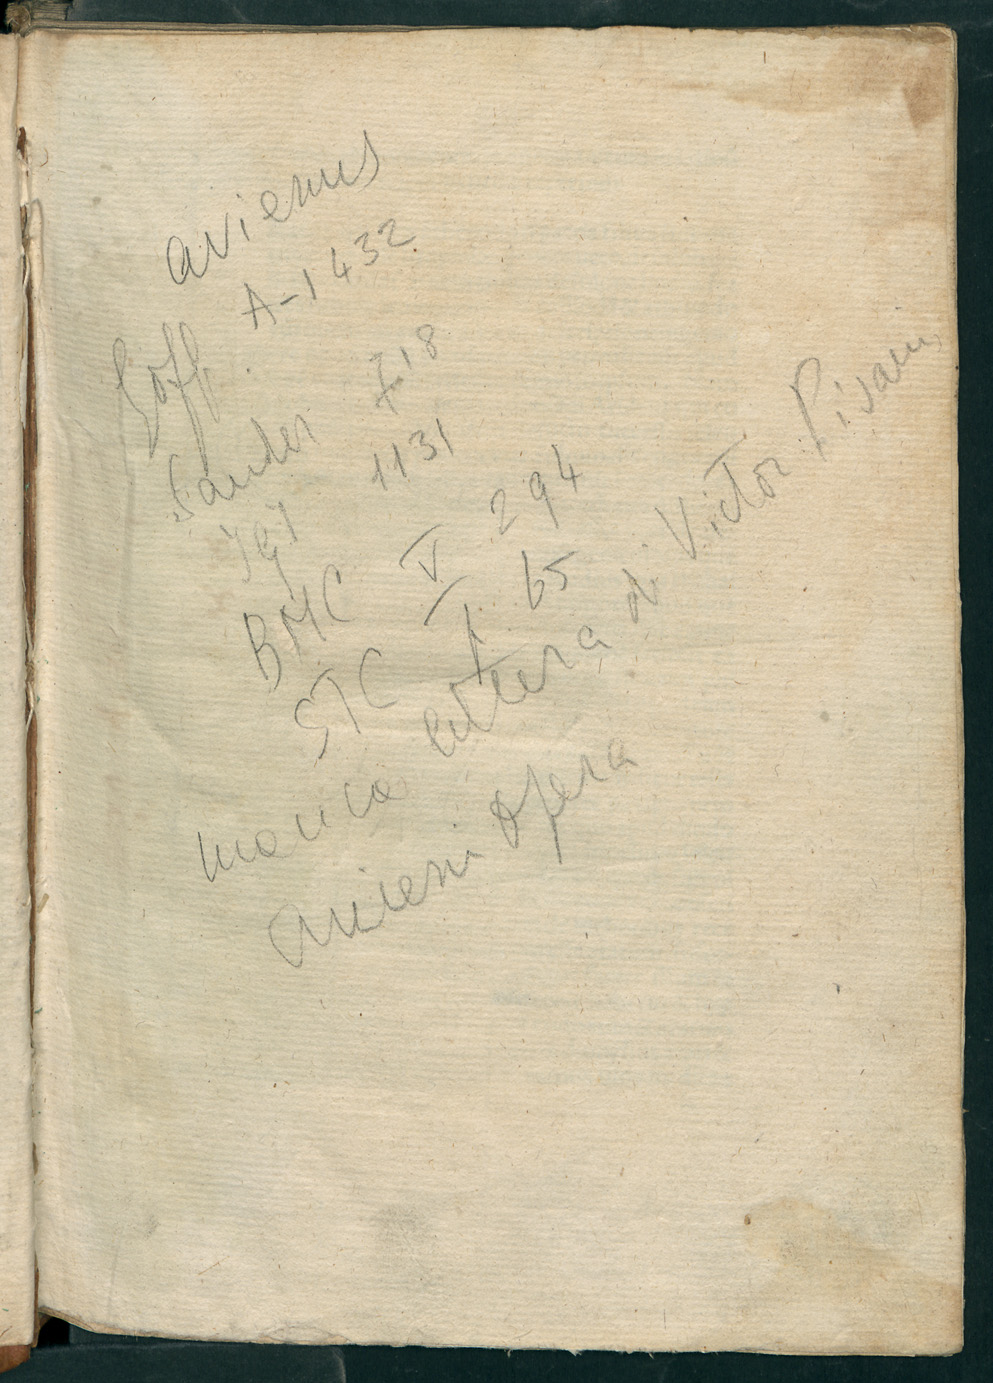 avienus
Goff. A-1432
Sander 718
IGI 1131
BMC V 294
STC I 65
manca lettera di Victor Pisani
Avieni Opera